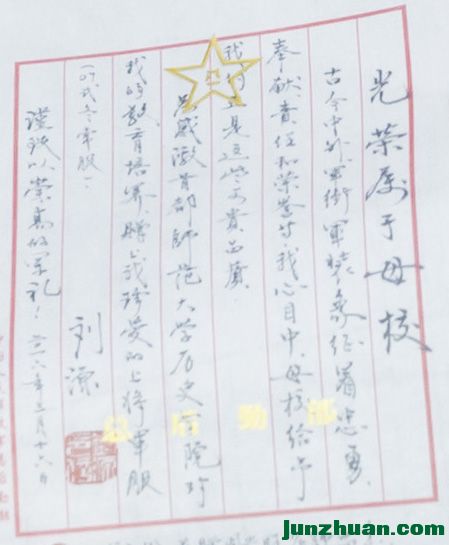 光荣属于母校
古今中外，军衔军装，象征着忠勇、
奉献责任和荣誉等，我心目中，母校给予
我们正是这些高贵品质。
为感激首都師范大学历史学院对
我的教育培养，赠上我珍爱的上将军服
(07式冬军服)。
谨致以崇高的军礼！
刘源
二〇一六年三月十六日
总后勤部
junzhuan.com